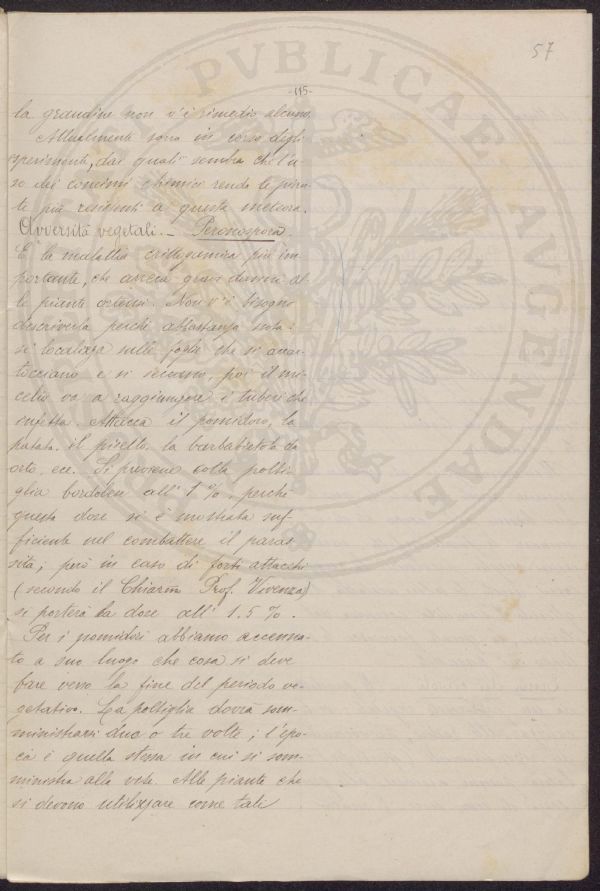 57
-115-
la grandine non v'è rimedio alcuno.
Attualmente sono in corso degli
esperimenti, dai quali sembra che l'u-
so dei concimi chimici renda le pian-
te più resistenti a questa meteora.
Avversità vegetali. - Peronospora
È la malattia crittogamica più im-
portante, che arreca gravi danni al-
le piante ortensi. Non v'è bisogno
descriverla perché abbastanza nota:
si localizza sulle foglie che si accar-
tocciano e si seccano, poi il mi-
celio va a raggiungere i tuberi che
infetta. Attacca il pomidoro, la
patata, il pisello, la barbabietola da
orto, ecc. Si previene colla polti-
glia bordolese all' 1 %, perché
questa dose si è mostrata suf-
ficiente nel combattere il paras-
sita; però in caso di forti attacchi
(secondo il Chiar.mo Prof. Vivenza)
si porterà la dose all' 1.5 %.
Per i pomidori abbiamo accenna-
to a suo luogo che cosa si deve
fare verso la fine del periodo ve-
getativo. La poltiglia dovrà som-
ministrarsi due o tre volte; l'épo-
ca è quella stessa in cui si som-
ministra alla vite. Alle piante che
si devono utilizzare come tali
PVBLICAE AVGENDAE